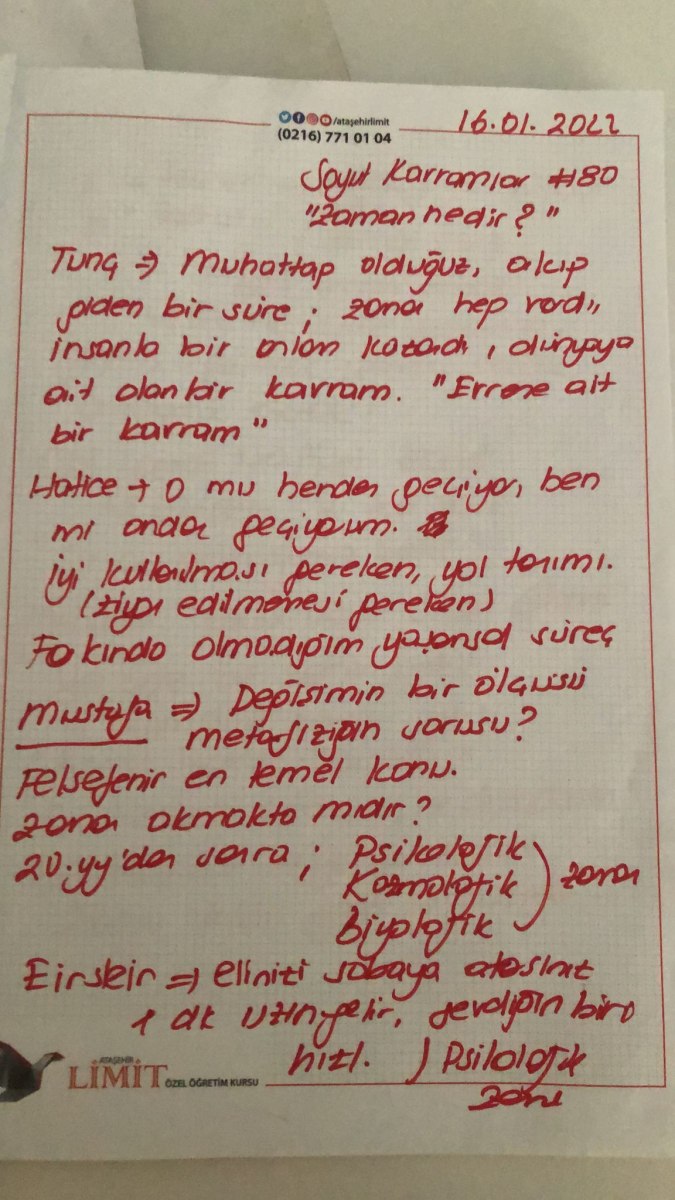 /ataşehirlimit
(0216) 771 01 04
16.01.2022
Soyut Kavramlar #180
"Zaman nedir?"
Tunç ⇒ Muhattap olduğuz, akıp
giden bir süre; zaman hep vardı,
insanla bir anlam kazandı, dünyaya
ait olan bir kavram. "Evrene ait
bir kavram"
Hatice → O mu benden geçiyor, ben
mi ondan geçiyorum.
İyi kullanılması gereken, yol tarımı.
(ziyan edilmemesi gereken)
Farkında olmadığım yaşansal süreç
Mustafa ⇒ Değişimin bir ölçüsü
metafiziğin sorusu?
Felsefenin en temel konu.
Zaman akmakta mıdır?
20.yy'dan sonra; Psikolojik
Kozmolojik ) zaman
Biyolojik
Einstein ⇒ elinizi sobaya
1 dk uzun gelir, sevdiğin biri
hızlı. ) Psikolojik
zaman
ATAŞEHİR
LİMİT ÖZEL ÖĞRETİM KURSU